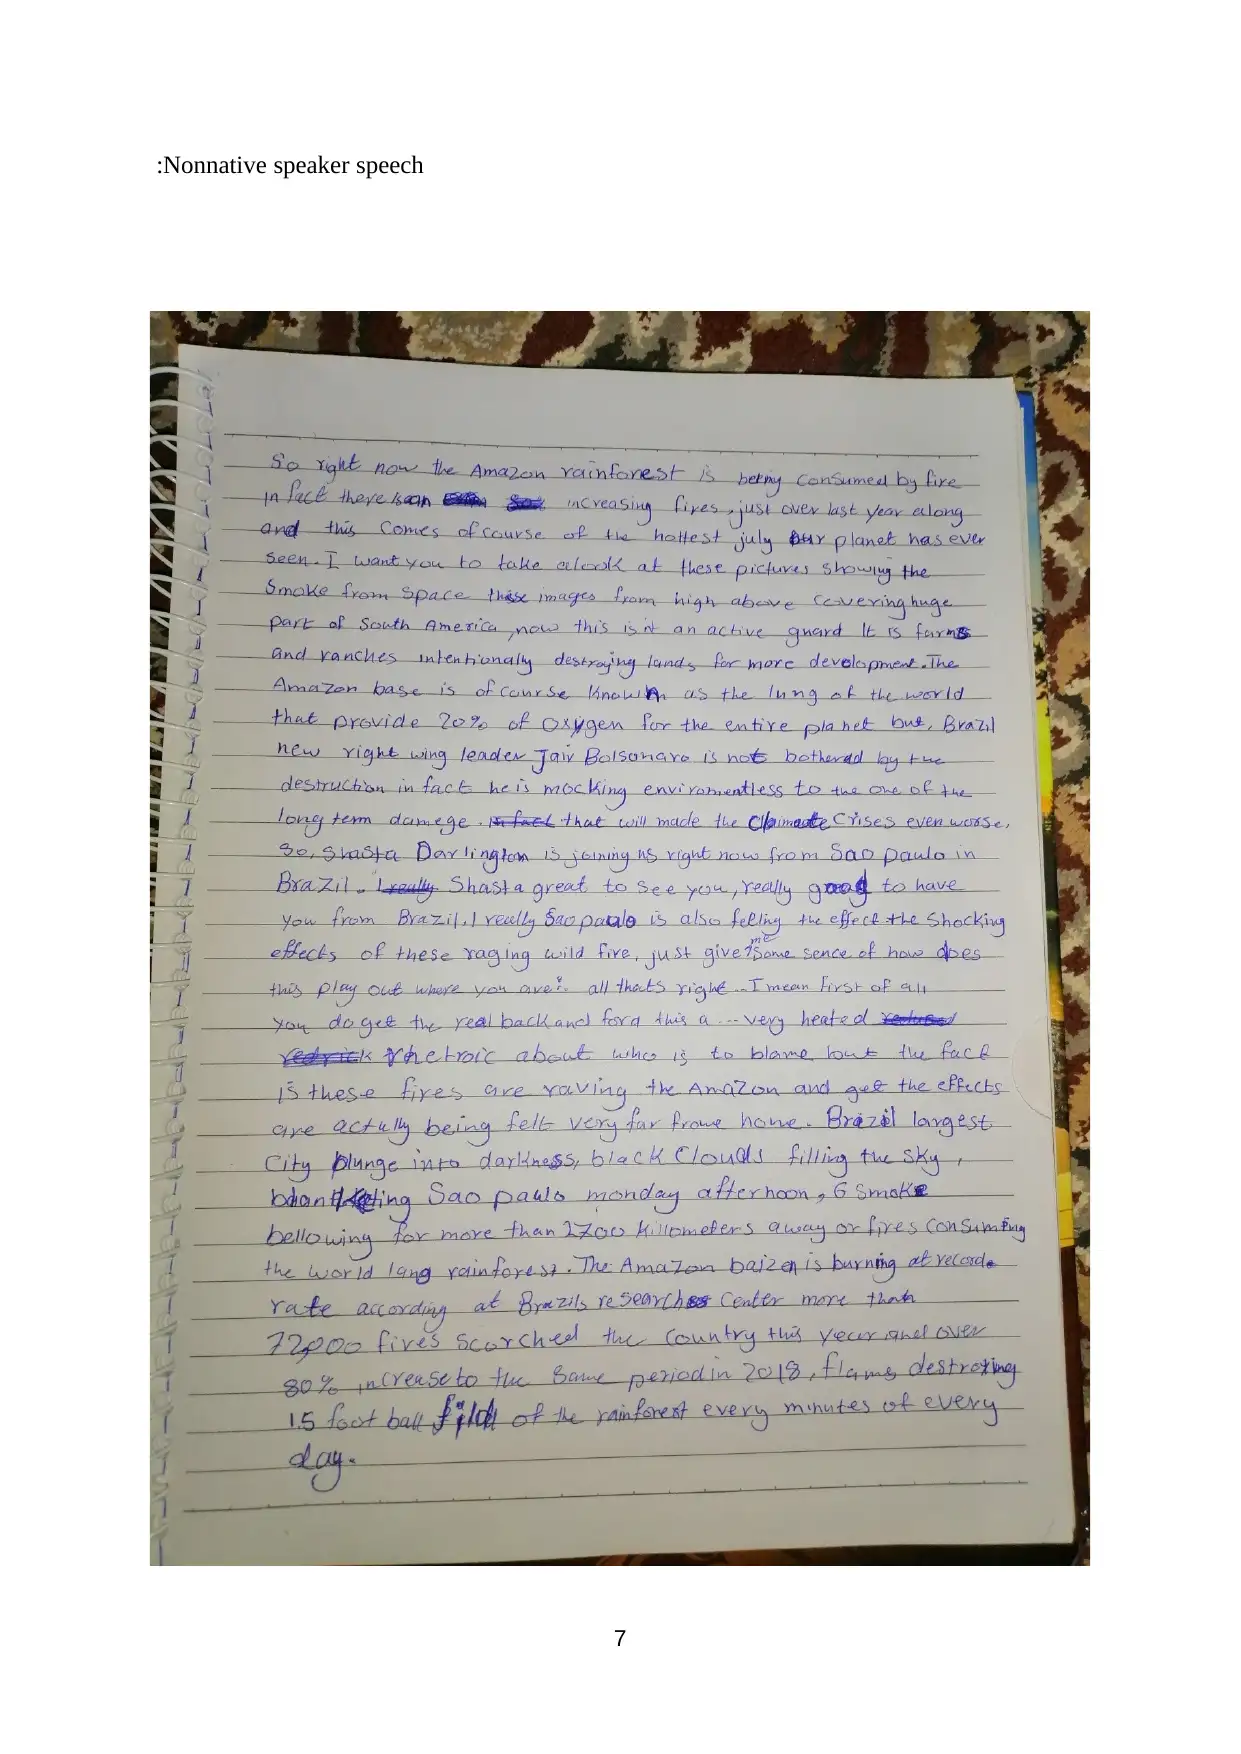 :Nonnative speaker speech
So right now the Amazon rainforest is being consumed by fire
in fact there is an increasing fires, just over last year along
and this comes of course of the hottest july our planet has ever
seen. I want you to take a look at these pictures showing the
Smoke from space these images from high above covering huge
part of South America, now this isn't an active guard It is farms
and ranches intentionally destroying lands for more development. The
Amazon base is of course known as the lung of the world
that provide 20% of oxygen for the entire planet but, Brazil
new right wing leader Jair Bolsonaro is not bothered by the
destruction in fact he is mocking enviromentless to the one of the
long term damege. that will made the Climate Crises even worse,
So, Shasta Darlington is joining us right now from Sao paulo in
Brazil. Shasta great to see you, really good to have
you from Brazil. I really Sao paulo is also felling the effect the Shocking
effects of these raging wild fire, just give me some sence of how does
this play out where you are? all thats right... I mean first of all
you do get the real back and ford this a --- very heated
rhetroic about who is to blame but the fact
is these fires are raving the Amazon and get the effects
are actully being felt very far frome home. Brazil largest
City plunge into darkness, black Clouds filling the sky,
Sao paulo monday afternoon, 6 smoke
bellowing for more than 2700 killometers away or fires Consuming
the world lang rainforest. The Amazon baizen is burning at record
rate according at Brazils research Center more than
72,000 fires scorched the country this year and over
80% increase to the same period in 2018, flams destroying
1.5 foot ball fild of the rainforest every minutes of every
day.
7